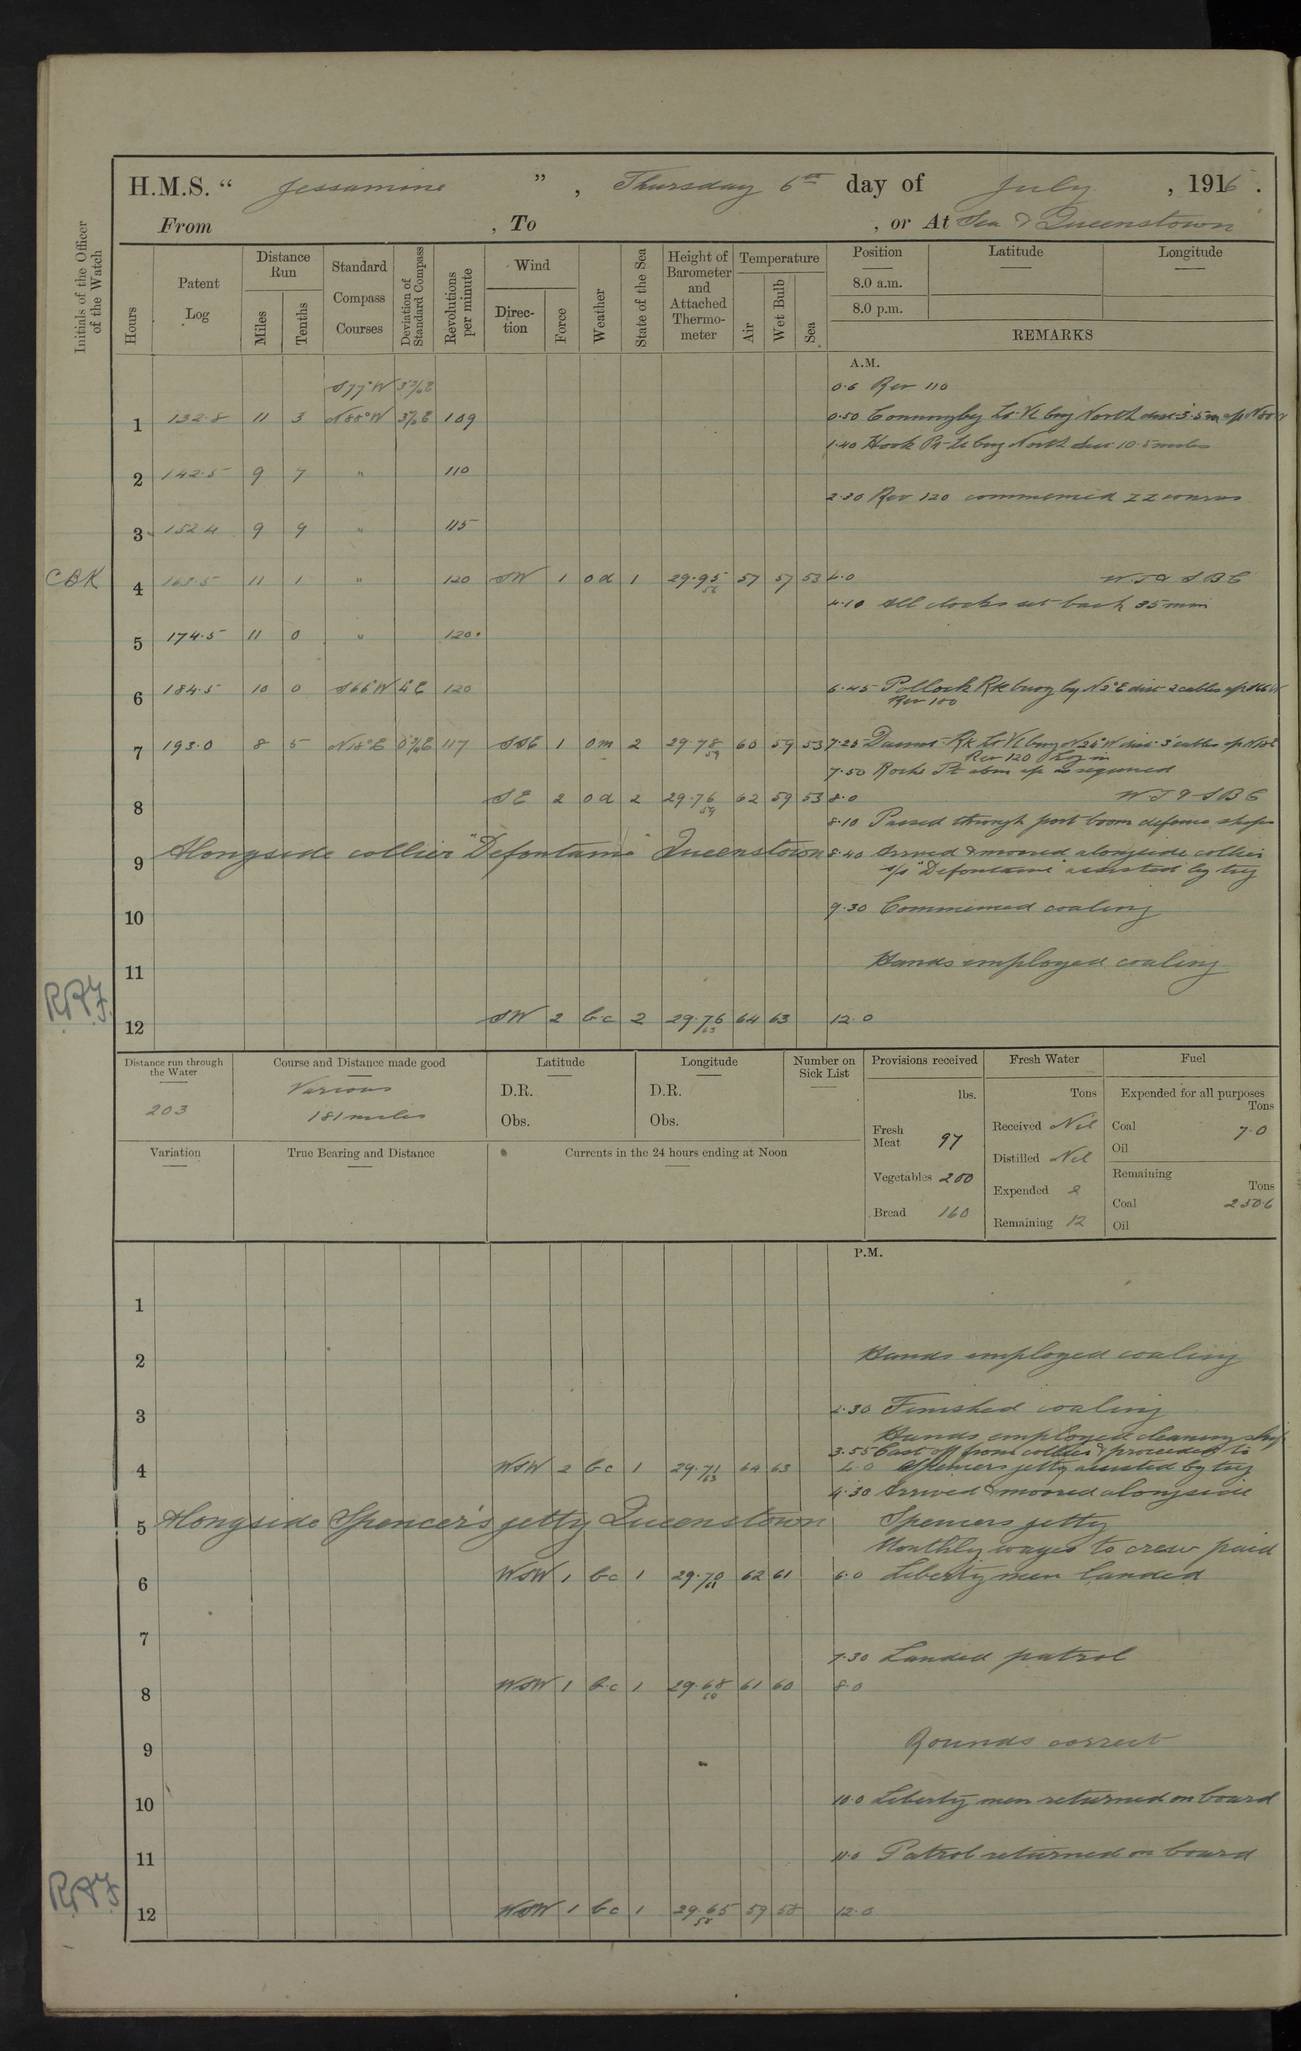 H.M.S. " Jessamine " , Thursday 6th day of July , 1916 .
From , To , or At Sea & Queenstown
Initials of the Officer of the Watch
Hours
Patent Log
Distance Run
Miles
Tenths
Standard Compass Courses
Deviation of Standard Compass
Revolutions per minute
Wind
Direction
Force
Weather
State of the Sea
Height of Barometer and Attached Thermometer
Temperature
Air
Wet Bulb
Sea
Position Latitude Longitude
8.0 a.m.
8.0 p.m.
REMARKS
A.M.
S77°W 0.6 Rev 110
1 132.8 11 3 N88°W 109 0.50 Lt. Vl brg North dist 3.5m
1.40 Hook Pt Lt brg North dist 10.5 miles
2 142.5 9 7 " 110
2.30 Rev 120 commenced ZZ courses
3 152.4 9 9 " 115
CBK 4 163.5 11 1 " 120 SW 1 od 1 29.95 56 57 57 53 4.0 WT & SBE
4.10 All clocks set back 35 min
5 174.5 11 0 " 120
6 184.5 10 0 S66°W 4E 120 6.45 Pollock Rk buoy brg N2°E dist 2 cables a/c
Rev 100
7 193.0 8 5 N18°E 117 SSE 1 om 2 29.78 59 60 59 53 7.25 Daunt Rk Lt Vl brg N26°W dist 3 cables
Rev 120 Log in
7.50 Roche Pt abm a/c as required
8 SE 2 od 2 29.76 59 62 59 53 8.0 WT & SBE
8.10 Passed through port boom defence
9 Alongside collier "Defontaine" Queenstown 8.40 Arrived & moored alongside collier
s/s "Defontaine" assisted by tug
10 9.30 Commenced coaling
11 Hands employed coaling
12 SW 2 bc 2 29.76 63 64 63 12.0
Distance run through the Water
203
Course and Distance made good
Various
181 miles
Latitude
D.R.
Obs.
Longitude
D.R.
Obs.
Number on Sick List
Variation
True Bearing and Distance
Currents in the 24 hours ending at Noon
Provisions received
lbs.
Fresh Meat 97
Vegetables 200
Bread 160
Fresh Water
Tons
Received Nil
Distilled Nil
Expended 2
Remaining 12
Fuel
Expended for all purposes
Tons
Coal 7.0
Oil
Remaining
Tons
Coal 250.6
Oil
P.M.
1
2 Hands employed coaling
3 Finished coaling
Hands employed cleaning ship
3.55 Cast off from collier & proceeded to
4 WSW 2 bc 1 29.71 63 64 63 4.0 Spencers jetty assisted by tug
4.30 Arrived & moored alongside
5 Alongside Spencer's jetty Queenstown Spencers jetty
Monthly wages to crew paid
6 WSW 1 bc 1 29.70 61 62 61 6.0 Liberty men landed
7
7.30 Landed patrol
8 WSW 1 bc 1 29.68 60 61 60 8.0
9 Rounds correct
10 10.0 Liberty men returned on board
11 11.0 Patrol returned on board
12 WSW 1 bc 1 29.65 58 59 58 12.0